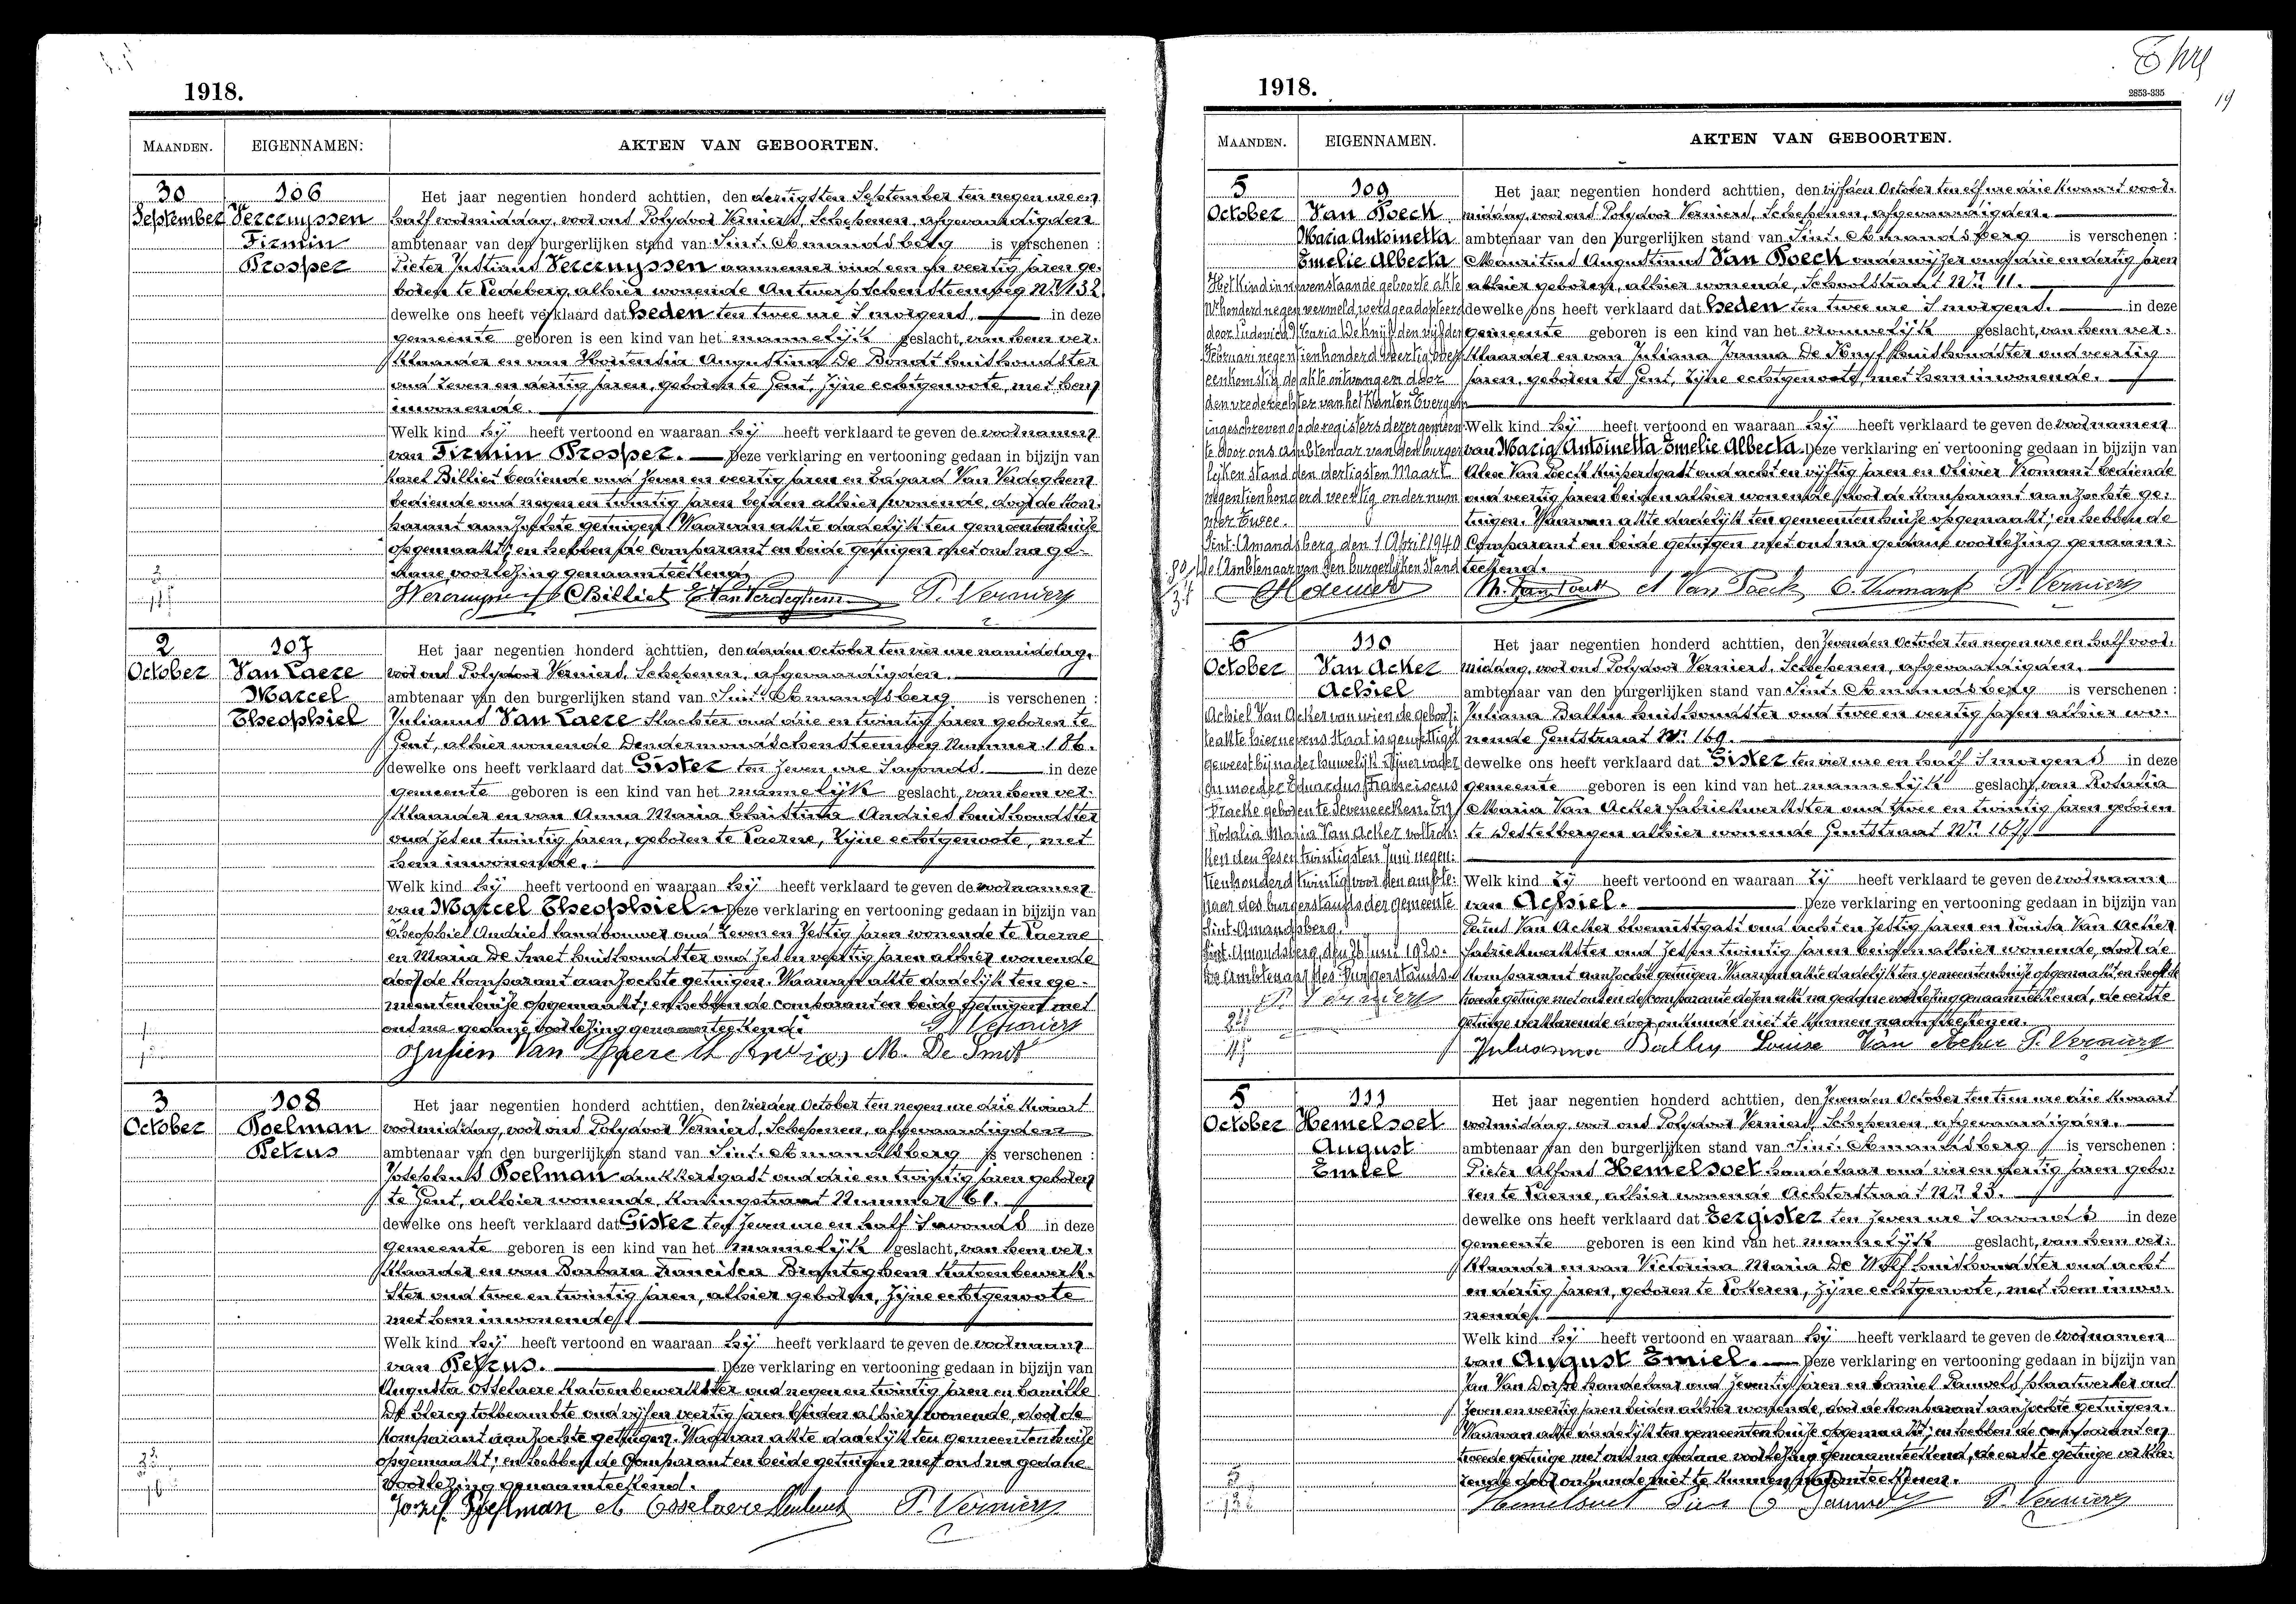 1918.
MAANDEN.
EIGENNAMEN:
AKTEN VAN GEBOORTEN.
30
September
106
Vercruyssen
Firmin
Prosper
Het jaar negentien honderd achttien, den dertigsten September ten negen ure en
half voormiddag, voor ons Polydoor Verniers, Schepenen, afgevaardigden
ambtenaar van den burgerlijken stand van Sint. Amandsberg is verschenen :
Pieter Justinus Vercruyssen aannemer oud een en veertig jaren ge-
boren te Ledeberg, alhier wonende Antwerpschensteenweg Nr 132.
dewelke ons heeft verklaard dat heden ten twee ure 's morgens, in deze
gemeente geboren is een kind van het mannelijk geslacht, van hem ver-
klaarder en van Hortensia Augustina De Bondt huishoudster
oud zeven en dertig jaren, geboren te Gent, zijne echtgenoote, met hem
inwonende.
Welk kind hij heeft vertoond en waaraan hij heeft verklaard te geven de voornamen
van Firmin Prosper. Deze verklaring en vertooning gedaan in bijzijn van
Karel Billiet bediende oud zeven en veertig jaren en Edgard Van Verdeghem
bediende oud negen en twintig jaren beiden alhier wonende, door de kom-
parant aanzochte getuigen. Waarvan akte dadelijk ten gemeentenhuize
opgemaakt; en hebben de comparant en beide getuigen met ons na ge-
dane voorlezing genaamteekend.
Vercruyssen C Billiet E. Van Verdeghem P. Verniers
2
October
107
Van Laere
Marcel
Theophiel
Het jaar negentien honderd achttien, den derden October ten vier ure namiddag,
voor ons Polydoor Verniers, Schepenen, afgevaardigden.
ambtenaar van den burgerlijken stand van Sint. Amandsberg is verschenen :
Julianus Van Laere slachter oud drie en twintig jaren geboren te
Gent, alhier wonende Dendermondschensteenweg Nummer 186.
dewelke ons heeft verklaard dat Gister ten zeven ure 's avonds. in deze
gemeente geboren is een kind van het mannelijk geslacht, van hem ver-
klaarder en van Anna Maria Christina Andries huishoudster
oud zes en twintig jaren, geboren te Laerne, zijne echtgenoote, met
hem inwonende.
Welk kind hij heeft vertoond en waaraan hij heeft verklaard te geven de voornamen
van Marcel Theophiel. Deze verklaring en vertooning gedaan in bijzijn van
Theophiel Andries landbouwer oud zeven en zestig jaren wonende te Laerne
en Maria De Smet huishoudster oud zes en veertig jaren alhier wonende
door de komparant aanzochte getuigen. Waarvan akte dadelijk ten ge-
meentenhuize opgemaakt; en hebben de comparant en beide getuigen met
ons na gedane voorlezing genaamteekend.
P. Verniers
Julien Van Laere Th Andries M. De Smet
3
October
108
Poelman
Petrus
Het jaar negentien honderd achttien, den vierden October ten negen ure drie kwaart
voormiddag, voor ons Polydoor Verniers, Schepenen, afgevaardigden
ambtenaar van den burgerlijken stand van Sint. Amandsberg is verschenen :
Josephus Poelman drukkersgast oud drie en twintig jaren geboren
te Gent, alhier wonende, Koningstraat Nummer 61.
dewelke ons heeft verklaard dat Gister ten zeven ure en half 's avonds in deze
gemeente geboren is een kind van het mannelijk geslacht, van hem ver-
klaarder en van Barbara Francisca Branteghem katoenbewerk-
ster oud twee en twintig jaren, alhier geboren, zijne echtgenoote
met hem inwonende.
Welk kind hij heeft vertoond en waaraan hij heeft verklaard te geven de voornaam
van Petrus. Deze verklaring en vertooning gedaan in bijzijn van
Augusta Osselaere katoenbewerkster oud negen en twintig jaren en Camille
De Clercq tolbeambte oud vijf en veertig jaren beiden alhier wonende, door de
komparant aanzochte getuigen. Waarvan akte dadelijk ten gemeentenhuize
opgemaakt; en hebben de comparant en beide getuigen met ons na gedane
voorlezing genaamteekend.
Jozef Poelman A Osselaere P. Verniers
1918.
2853-335
MAANDEN.
EIGENNAMEN.
AKTEN VAN GEBOORTEN.
5
October
109
Van Poeck
Maria Antoinetta
Emelie Alberta
Het kind in nevenstaande geboorte akte
Nr honderd negen vermeld, werd geadopteerd
door Ludovica Maria De Knijf den vijfden
Februari negentienhonderd veertig, over-
eenkomstig de akte ontvangen door
den vrederechter van het kanton Evergem
ingeschreven op de registers dezer gemeen-
te door ons Ambtenaar van den burger-
lijken stand den dertigsten Maart
negentienhonderd veertig onder num-
mer Twee.
Sint-Amandsberg, den 1 April 1940
De Ambtenaar van den Burgerlijken Stand
Het jaar negentien honderd achttien, den vijfden October ten elf ure drie kwaart voor-
middag, voor ons Polydoor Verniers, Schepenen, afgevaardigden.
ambtenaar van den burgerlijken stand van Sint. Amandsberg is verschenen :
Mauritius Augustinus Van Poeck onderwijzer oud drie en dertig jaren
alhier geboren, alhier wonende, Schoolstraat Nr 11.
dewelke ons heeft verklaard dat heden ten twee ure 's morgens. in deze
gemeente geboren is een kind van het vrouwelijk geslacht, van hem ver-
klaarder en van Juliana Joanna De Knyf huishoudster oud veertig
jaren, geboren te Gent, zijne echtgenoote, met hem inwonende.
Welk kind hij heeft vertoond en waaraan hij heeft verklaard te geven de voornamen
van Maria Antoinetta Emelie Alberta. Deze verklaring en vertooning gedaan in bijzijn van
Aloïs Van Poeck kuipersgast oud acht en vijftig jaren en Olivier Kromant bediende
oud veertig jaren beiden alhier wonende, door de komparant aanzochte ge-
tuigen. Waarvan akte dadelijk ten gemeentenhuize opgemaakt; en hebben de
Comparant en beide getuigen met ons na gedane voorlezing genaam-
teekend.
M. Van Poeck A Van Poeck O. Kromant P. Verniers
6
October
110
Van Acker
Achiel
Achiel Van Acker van wien de geboor-
teakte hiernevens staat is gewettigd
geweest bij nader huwelijk zijner vader
en moeder Eduardus Franciscus
Pracke geboren te Seveneecken. En
Rosalia Maria Van Acker voltrok-
ken den zesentwintigsten Juni negen-
tienhonderd twintig voor den ambte-
naar des burgerstands der gemeente
Sint-Amandsberg.
Sint-Amandsberg, den 26 Juni 1920.
De Ambtenaar des Burgerstands.
P. Verniers
Het jaar negentien honderd achttien, den zevenden October ten negen ure en half voor-
middag, voor ons Polydoor Verniers, Schepenen, afgevaardigden.
ambtenaar van den burgerlijken stand van Sint. Amandsberg is verschenen :
Juliana Balliu huishoudster oud twee en veertig jaren alhier wo-
nende Gentstraat Nr 169.
dewelke ons heeft verklaard dat Gister ten vier ure en half 's morgens in deze
gemeente geboren is een kind van het mannelijk geslacht, van Rosalia
Maria Van Acker fabriekwerkster oud twee en twintig jaren geboren
te Destelbergen alhier wonende Gentstraat Nr 167.
Welk kind zij heeft vertoond en waaraan zij heeft verklaard te geven de voornaam
van Achiel. Deze verklaring en vertooning gedaan in bijzijn van
Petrus Van Acker bloemistgast oud acht en zestig jaren en Louisa Van Acker
fabriekwerkster oud zes en twintig jaren beiden alhier wonende, door de
komparant aanzochte getuigen. Waarvan akte dadelijk ten gemeentenhuize opgemaakt en heeft de
tweede getuige met ons en de comparante dezen akt na gedane voorlezing genaamteekend, de eerste
getuige verklarende door onkunde niet te kunnen naamteekenen.
Juliana Balliu Louise Van Acker P. Verniers
5
October
111
Hemelsoet
August
Emiel
Het jaar negentien honderd achttien, den zevenden October ten tien ure drie kwaart
voormiddag, voor ons Polydoor Verniers, Schepenen, afgevaardigden.
ambtenaar van den burgerlijken stand van Sint. Amandsberg is verschenen :
Pieter Alfons Hemelsoet handelaar oud vier en veertig jaren gebo-
ren te Laerne, alhier wonende Achterstraat Nr 23.
dewelke ons heeft verklaard dat Eergister ten zeven ure 's avonds in deze
gemeente geboren is een kind van het mannelijk geslacht, van hem ver-
klaarder en van Victorina Maria De Wolf huishoudster oud acht
en dertig jaren, geboren te Lokeren, zijne echtgenoote, met hem inwo-
nende.
Welk kind hij heeft vertoond en waaraan hij heeft verklaard te geven de voornamen
van August Emiel. Deze verklaring en vertooning gedaan in bijzijn van
Jan Van Dorpe handelaar oud zeventig jaren en Camiel Pauwels plaatwerker oud
zeven en veertig jaren beiden alhier wonende, door de komparant aanzochte getuigen.
Waarvan akte dadelijk ten gemeentenhuize opgemaakt; en hebben de comparant en
tweede getuige met ons na gedane voorlezing genaamteekend, de eerste getuige verkla-
rende door onkunde niet te kunnen naamteekenen.
Hemelsoet Pier C Pauwels P. Verniers